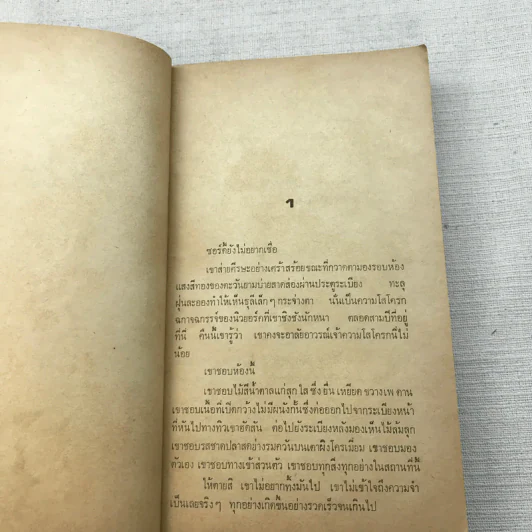 ๑
ซอร์ดี้ยังไม่อยากเชื่อ
เขาส่ายศีรษะอย่างเศร้าสร้อยขณะที่กวาดตามองรอบห้อง
แสงสีทองของตะวันยามบ่ายสาดส่องผ่านประตูระเบียง ทะลุ
ฝุ่นละอองทำให้เห็นธุลีเล็กๆ กระจ่างตา นั่นเป็นความโสโครก
ของนิวยอร์คที่เขาชิงชังนักหนา ตลอดสามปีที่อยู่
ที่นี่ คืนนี้เขารู้ว่า เขาคงจะอาลัยอาวรณ์เจ้าความโสโครกนี่ไม่
น้อย
เขาชอบห้องนี้
เขาชอบไม้สีน้ำตาลแก่สุกใส ซึ่งยื่นเหยียดขวางเพดาน
เขาชอบเนื้อที่เปิดกว้างไม่มีผนังกั้นซึ่งต่อออกไปจากระเบียงหน้า
ที่หันไปทางทิวเขาฮัดสัน ต่อไปยังระเบียงหลังมองเห็นไม้ล้มลุก
เขาชอบรสชาดปลาสดย่างรมควันบนเตาผิงโครเมี่ยม เขาชอบมอง
ตัวเอง เขาชอบทางเข้าส่วนตัว เขาชอบทุกสิ่งทุกอย่างในสถานที่นี้
ให้ตายสิ เขาไม่อยากทิ้งมันไป เขาไม่เข้าใจถึงความจำ
เป็นเลยจริงๆ ทุกอย่างเกิดขึ้นอย่างรวดเร็วจนเกินไป